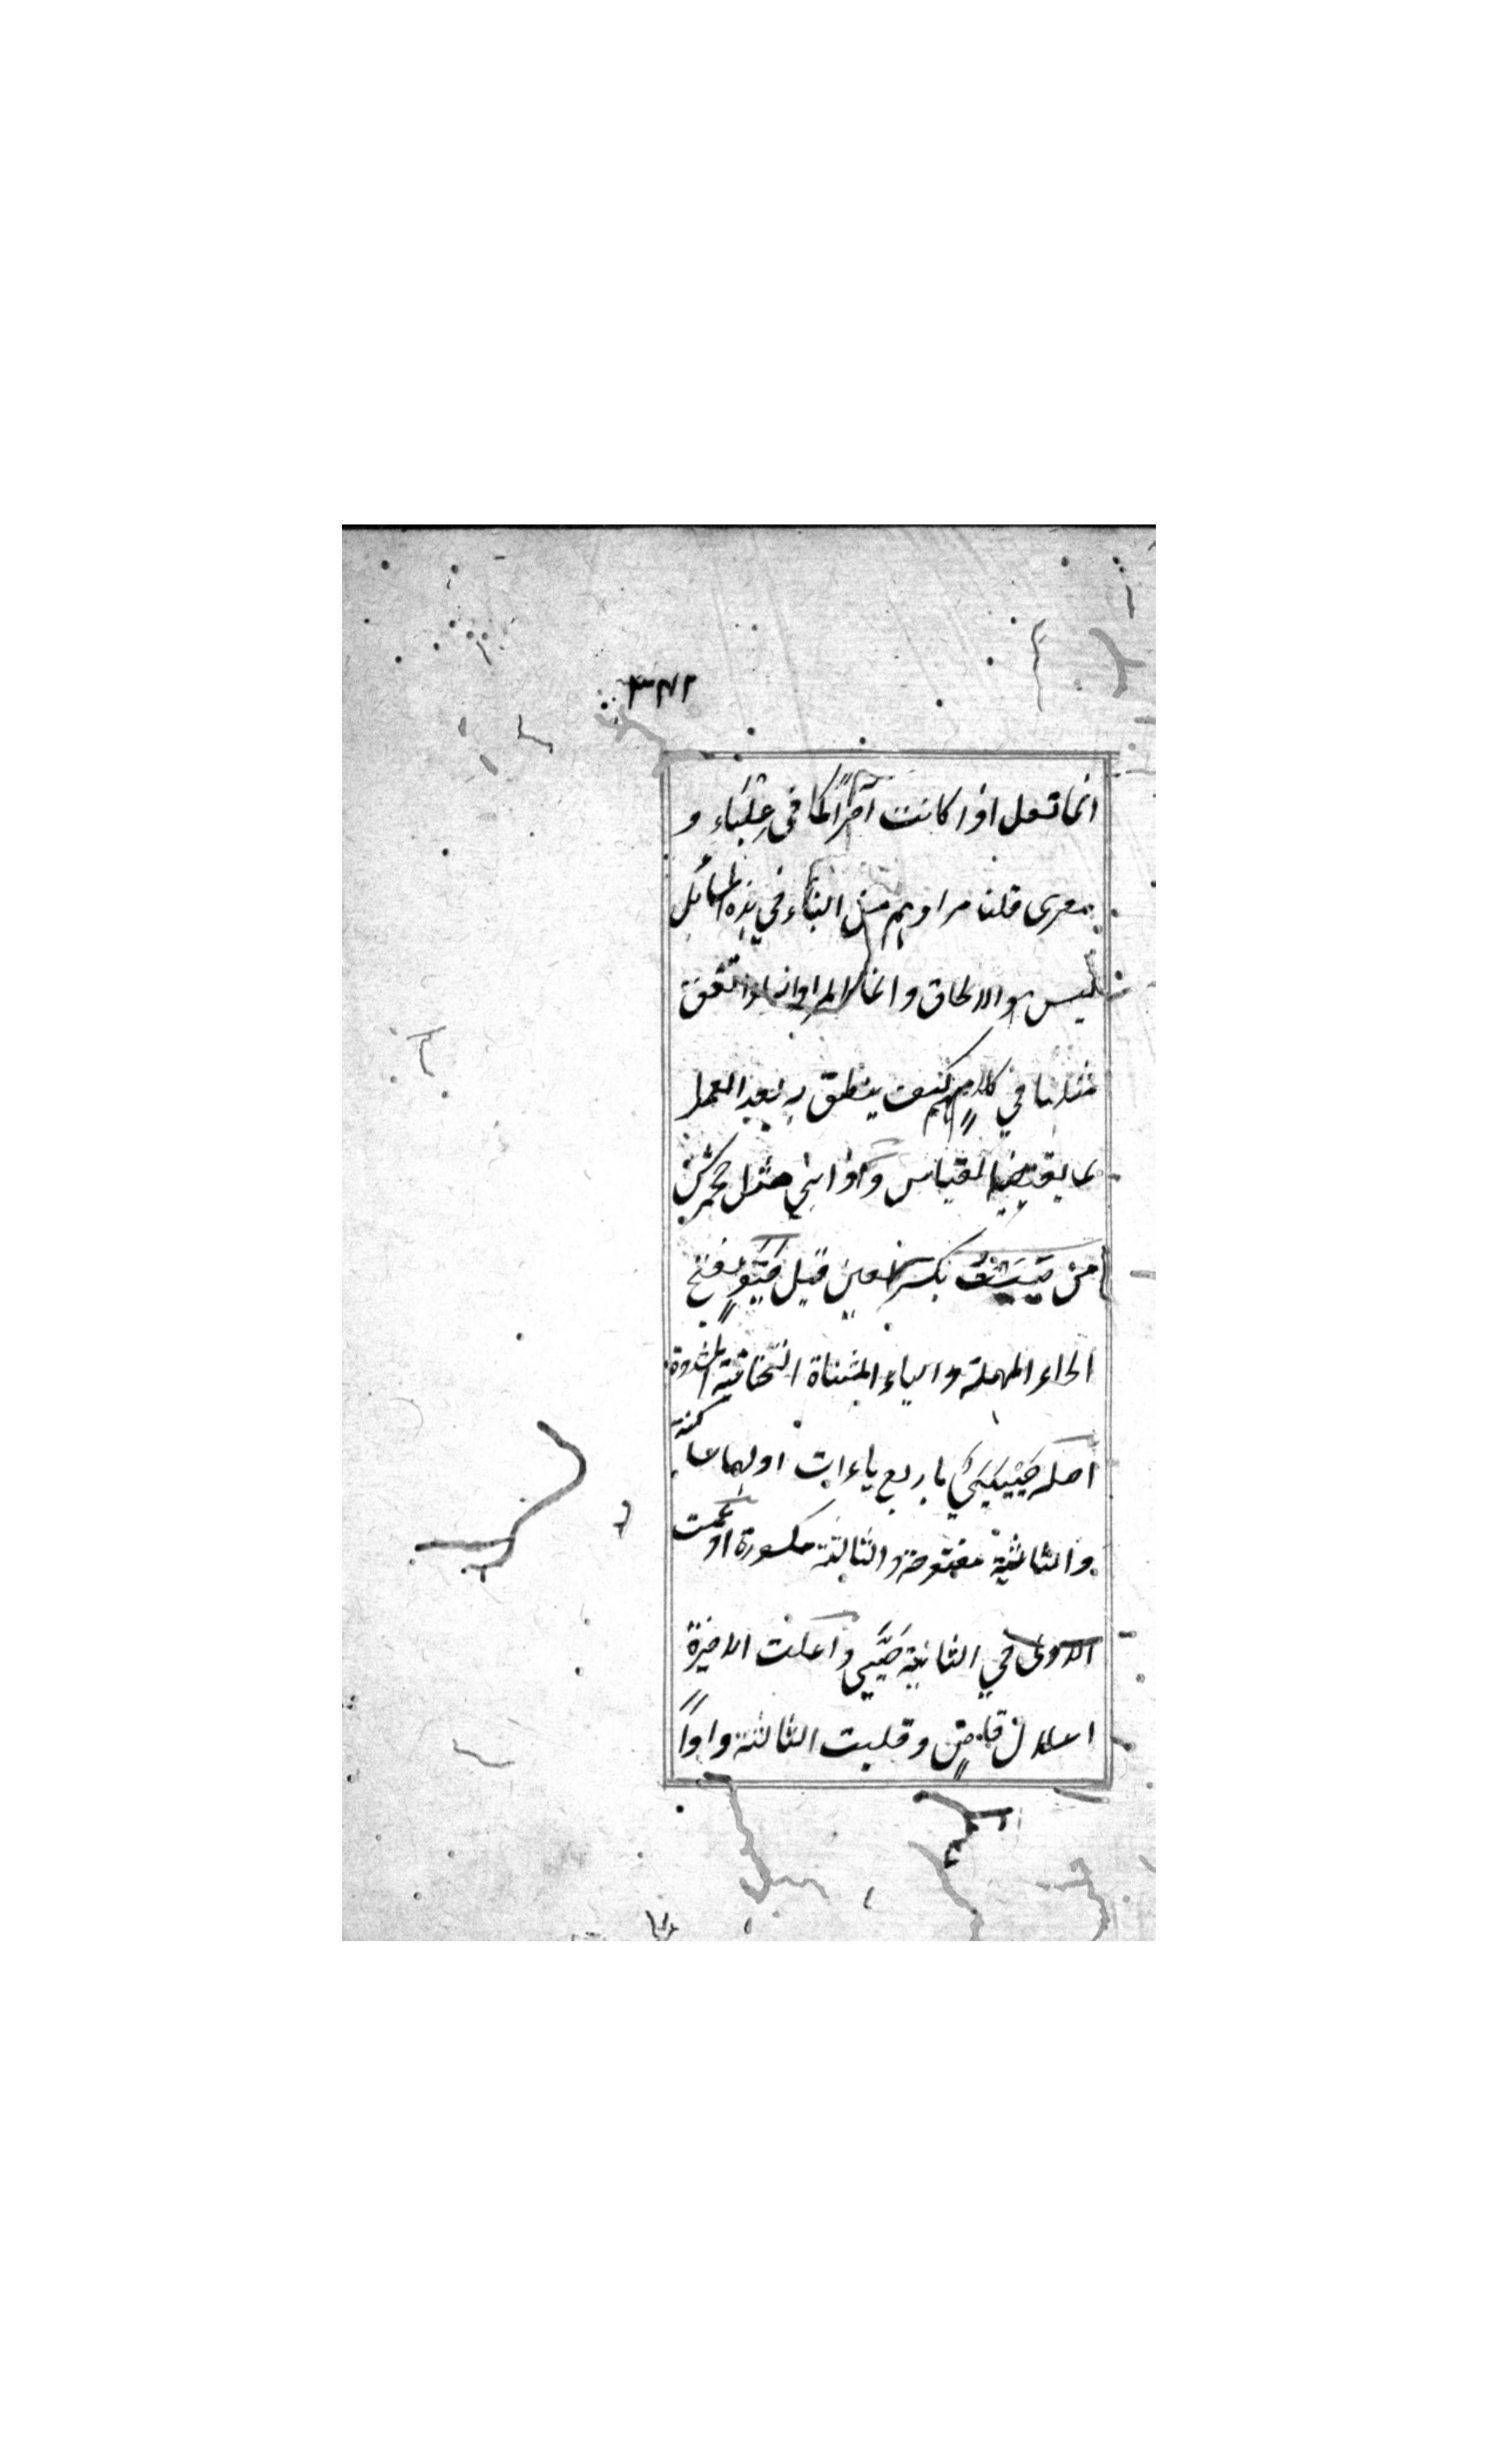 ٣٧٢
انما تعل اذا كانت آخراً كما فى عِلْبَاء و
معزى قلنا مرادهم من البناء في هذه المسائل
ليس هو الالحاق وانما المراد انه لو اتفق
مثلها في كلامهم كيف ينطق به بعد العمل
بما يقتضيه القياس واذا بنى مثل جحمرش
من حَيِيَتْ بكسر العين قيل حَيَّوٍ بفتح
الحاء المهملة والياء المثناة التحتانية المشددة
اصله حَيْيَيِيٌ باربع ياءات اولها ساكنة
والثانية مفتوحة والثالثة مكسورة ادغمت
الاولى في الثانية حَيَّيِي واعلت الاخيرة
اعلال قاضٍ وقلبت الثالثة واواً